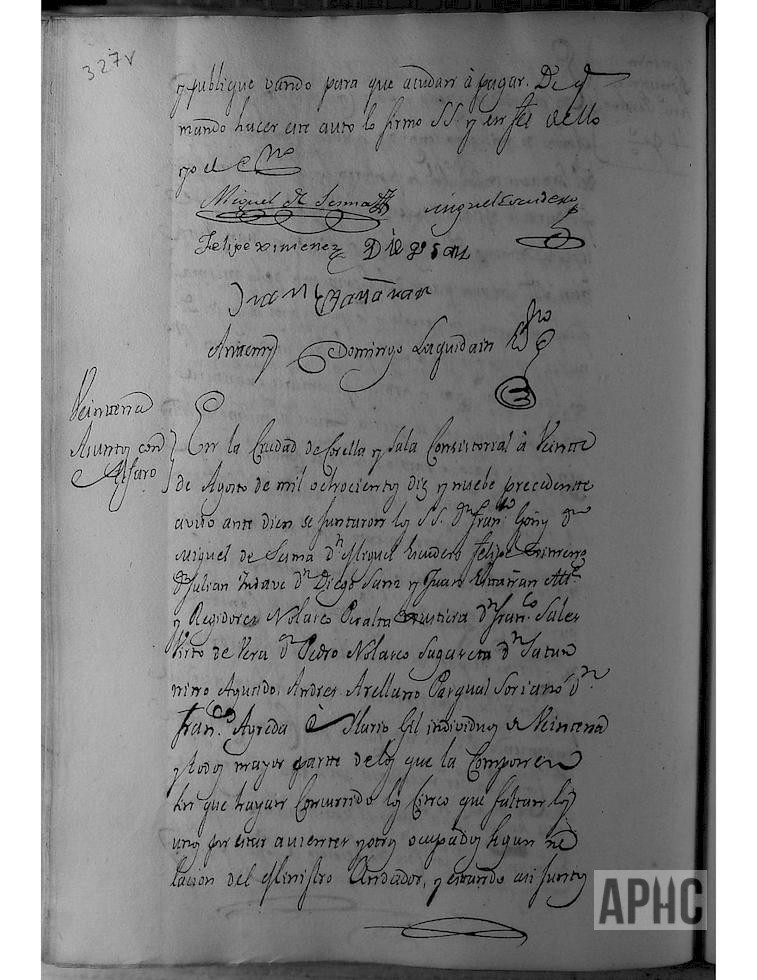 327v
y publique vando para que acudan à pagar. De q
mando hacer este auto lo firmo SS. y en feé de ello
yo el Sno
Miguel de Sesma Miguel Escudero
Felipe Ximenez Diego San
Juan
Antemi Domingo Laquidain Sno
Veintena
Asunto con
Alfaro
En la Ciudad de Corella y Sala Consistorial à Veinte
de Agosto de mil ochocientos diz y nuebe precedente
aviso ante diem se juntaron los SS. Dn Franco Goñy Dn
Miguel de Sesma Dn Miguel Escudero Felipe Ximenez
Dn Julian Dn Diego Sanz y Juan Alte
y Regidores Nolasco Peralta Dn Franco Sales
Virto de Vera Dn Pedro Nolasco Dn Satur
nino Agustido, Andres Arellano Pasqual Soriano Dn
Franco Agreda è Ilario Gil individuos de Veintena
y todos mayor parte de los que la Componen
sin que hayan Concurrido los Cinco que faltan los
unos por estar ausentes y otros ocupados segun re
lacion del Ministro Andador, y estando asi juntos
APHC